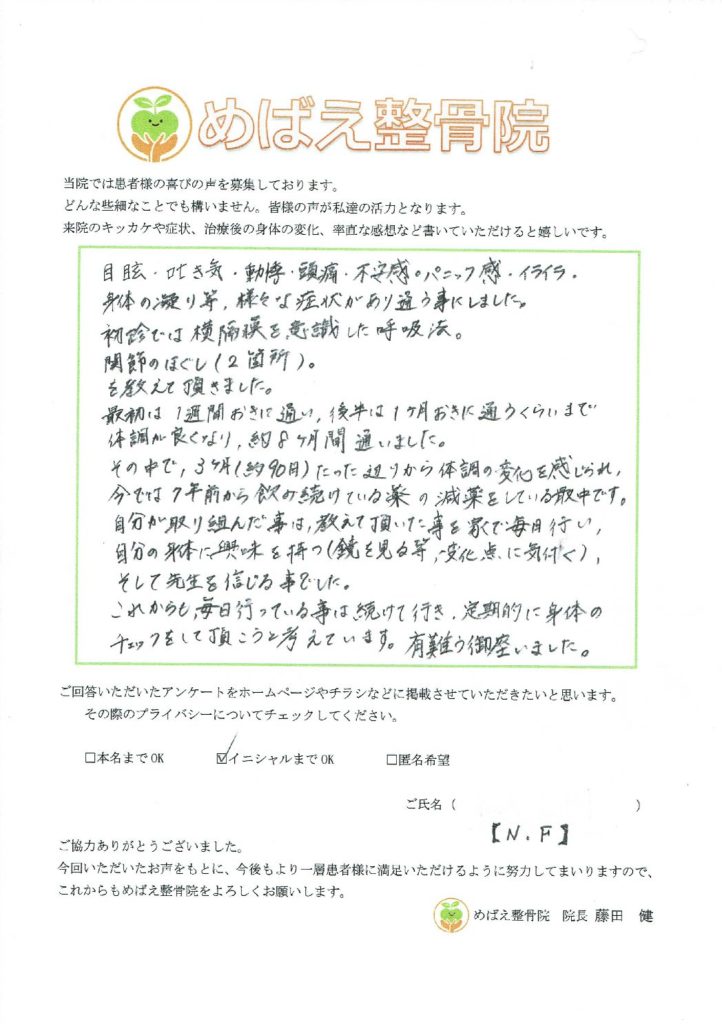 めばえ整骨院
当院では患者様の喜びの声を募集しております。
どんな些細なことでも構いません。皆様の声が私達の活力となります。
来院のキッカケや症状、治療後の身体の変化、率直な感想など書いていただけると嬉しいです。
目眩・吐き気・動悸・頭痛・不安感・パニック感・イライラ・
身体の凝り等、様々な症状があり通う事にしました。
初診では横隔膜を意識した呼吸法。
関節のほぐし(2箇所)。
を教えて頂きました。
最初は1週間おきに通い、後半は1ヶ月おきに通うくらいまで
体調が良くなり、約8ヶ月間通いました。
その中で、3ヶ月(約90日)たった辺りから体調の変化を感じられ、
今では7年前から飲み続けている薬の減薬をしている最中です。
自分が取り組んだ事は、教えて頂いた事を家で毎日行い、
自分の身体に興味を持つ(鏡を見る等、変化点に気付く)、
そして先生を信じる事でした。
これからも、毎日行っている事は続けて行き、定期的に身体の
チェックをして頂こうと考えています。有難う御座いました。
ご回答いただいたアンケートをホームページやチラシなどに掲載させていただきたいと思います。
その際のプライバシーについてチェックしてください。
□本名までOK ☑イニシャルまでOK □匿名希望
ご氏名( )
【N.F】
ご協力ありがとうございました。
今回いただいたお声をもとに、今後もより一層患者様に満足いただけるように努力してまいりますので、
これからもめばえ整骨院をよろしくお願いします。
めばえ整骨院 院長 藤田 健